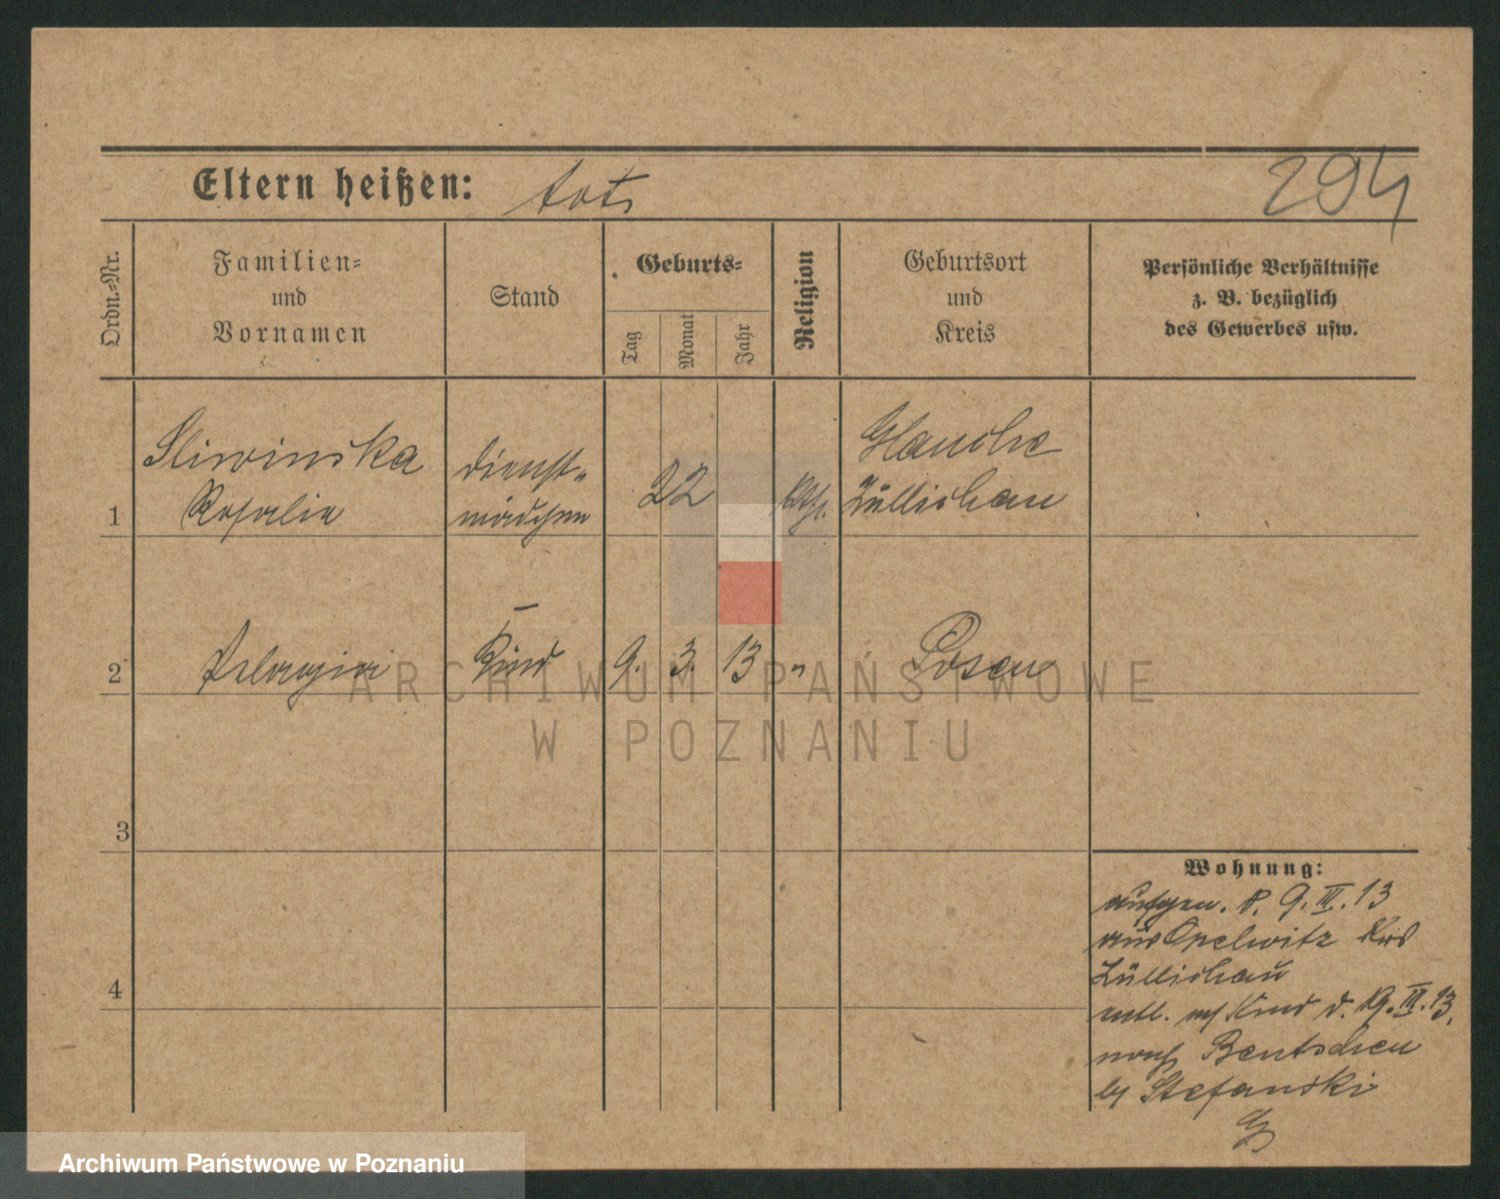 Eltern heißen: tot.
294
Ordn.-Nr.
Familien-
und
Vornamen
Stand
Geburts-
Tag
Monat
Jahr
Religion
Geburtsort
und
Kreis
Persönliche Verhältnisse
z. B. bezüglich
des Gewerbes usw.
1
Sliwinska
Rosalie
Dienst-
mädchen
22
kth.
Glauche
Züllichau
2
Pelagia
Kind
9. 3. 13
"
Posen
3
4
Wohnung:
aufgen. 9. III. 13
aus Opelwitz Krs
Züllichau
entl. m/ Kind d. 19. III. 13.
nach Bentschen
b/ Stefanski
ARCHIWUM PAŃSTWOWE
W POZNANIU
Archiwum Państwowe w Poznaniu